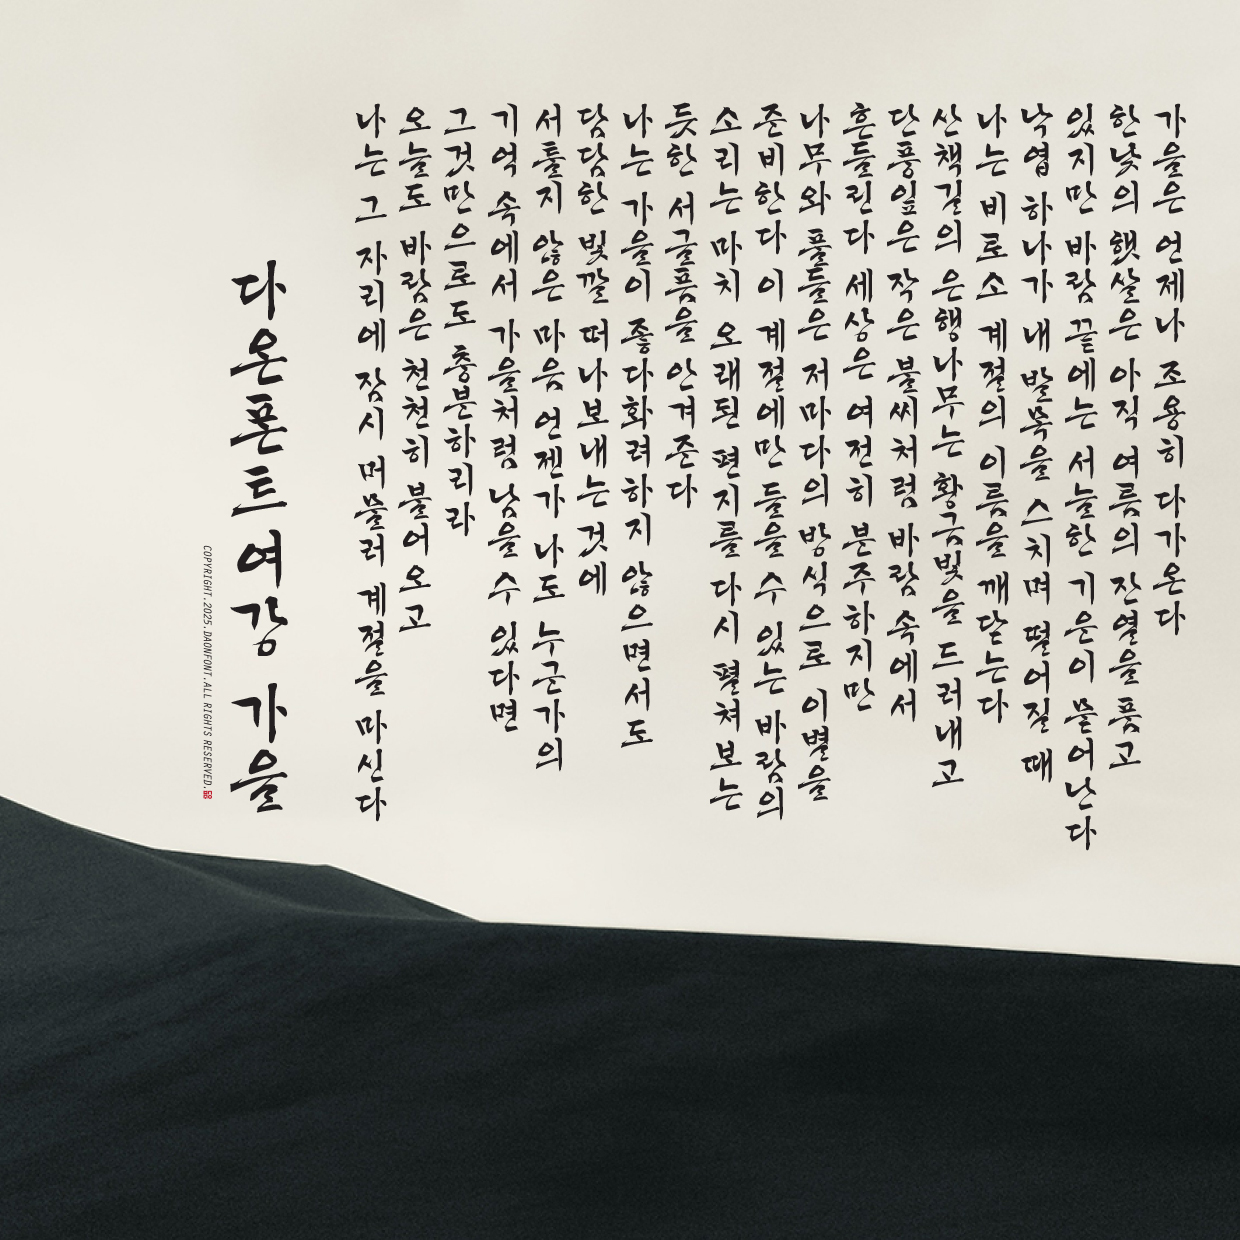 가을은 언제나 조용히 다가온다
한낮의 햇살은 아직 여름의 잔열을 품고
있지만 바람 끝에는 서늘한 기운이 묻어난다
낙엽 하나가 내 발목을 스치며 떨어질 때
나는 비로소 계절의 이름을 깨닫는다
산책길의 은행나무는 황금빛을 드러내고
단풍잎은 작은 불씨처럼 바람 속에서
흔들린다 세상은 여전히 분주하지만
나무와 풀들은 저마다의 방식으로 이별을
준비한다 이 계절에만 들을 수 있는 바람의
소리는 마치 오래된 편지를 다시 펼쳐 보는
듯한 서글픔을 안겨준다
나는 가을이 좋다화려하지 않으면서도
담담한 빛깔 떠나보내는 것에
서툴지 않은 마음 언젠가 나도 누군가의
기억 속에서 가을처럼 남을 수 있다면
그것만으로도 충분하리라
오늘도 바람은 천천히 불어오고
나는 그 자리에 잠시 머물러 계절을 마신다
다온폰트 여강 가을
COPYRIGHT.2025.DAONFONT.ALL RIGHTS RESERVED.